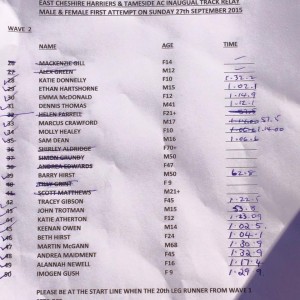 EAST CHESHIRE HARRIERS & TAMESIDE AC INAUGUAL TRACK RELAY
MALE & FEMALE FIRST ATTEMPT ON SUNDAY 27th SEPTEMBER 2015
WAVE 2
NAME AGE TIME
26 MACKENZIE GILL F14
27 ALEX GREEN M12
28 KATIE DONNELLY F10 1-32.2
29 ETHAN HARTSHORNE M15 1-02.1
30 EMMA MCDONALD F12 1-14.9
31 DENNIS THOMAS M41 1-12.1
32 HELEN FARRELL F21+
33 MARCUS CRAWFORD M17
34 MOLLY HEALEY F10 1-14.00
35 SAM DEAN M16 1-06.6
36 SHIRLEY ALDRIDGE F70+
37 SIMON GRUNDY M50
38 ANDREA EDWARDS F47
39 BARRY HIRST M50 62.8
40 F 9
41 SCOTT MATTHEWS M21+
42 TRACEY GIBSON F45 1-22.1
43 JOHN TROTMAN M15 53.9
44 KATIE ATHERTON F12 1-23.09
45 KEENAN OWEN M14 1-02.5
46 BETH HIRST F24 1-04.1
47 MARTIN McGANN M68 1-30.9
48 ANDREA MAIDMENT F45 1-32.9
49 ALANNAH NEWELL F16 1-17.4
50 IMOGEN GUSH F 9 1-29.9
PLEASE BE AT THE START LINE WHEN THE 20th LEG RUNNER FROM WAVE 1